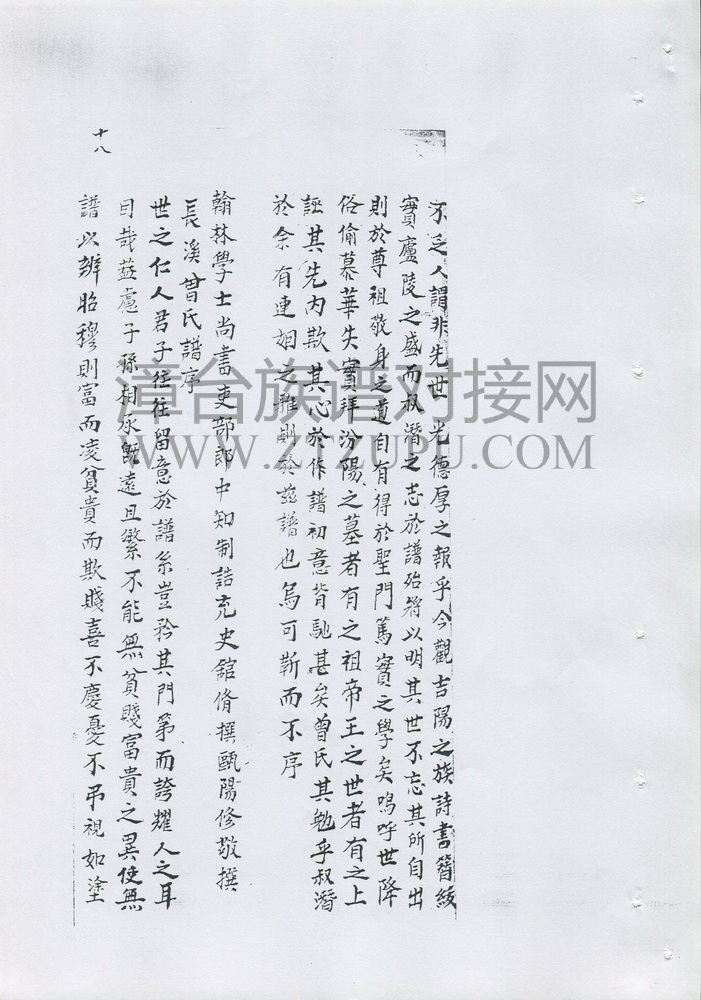 不乏人謂非先世光德厚之報乎今觀吉陽之族詩書簪紱
實廬陵之盛而叔潛之志於譜殆將以明其世不忘其所自出
則於尊祖敬身之道自有得於聖門篤實之學矣嗚呼世降
俗偷慕華失實拜汾陽之墓者有之祖帝王之世者有之上
誣其先內欺其心於作譜初意皆馳甚矣曾氏其勉乎叔潛
於余有連姻之雅則於茲譜也烏可靳而不序
翰林學士尚書吏部郎中知制誥充史舘脩撰甌陽修敬撰
長溪曾氏譜序
世之仁人君子往往留意於譜系豈矜其門第而誇耀人之耳
目哉葢慮子孫相承旣遠且繁不能無貧賤富貴之異使無
譜以辨昭穆則富而凌貧貴而欺賤喜不慶憂不弔視如塗
十八
漳台族谱对接网
WWW.ZTZUPU.COM